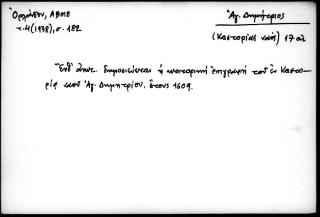 Ὀρλάνδου, ΑΒΜΕ
τ. 4 (1938), σ. 182
Ἁγ. Δημήτριος
(Καστοριάς ναός) 17 αι
Ἔνθ' ἀνωτ. δημοσιεύεται ἡ κτιτορική ἐπιγραφή τοῦ ἐν Καστο-
ρίᾳ ναοῦ Ἁγ. Δημητρίου, ἔτους 1609.